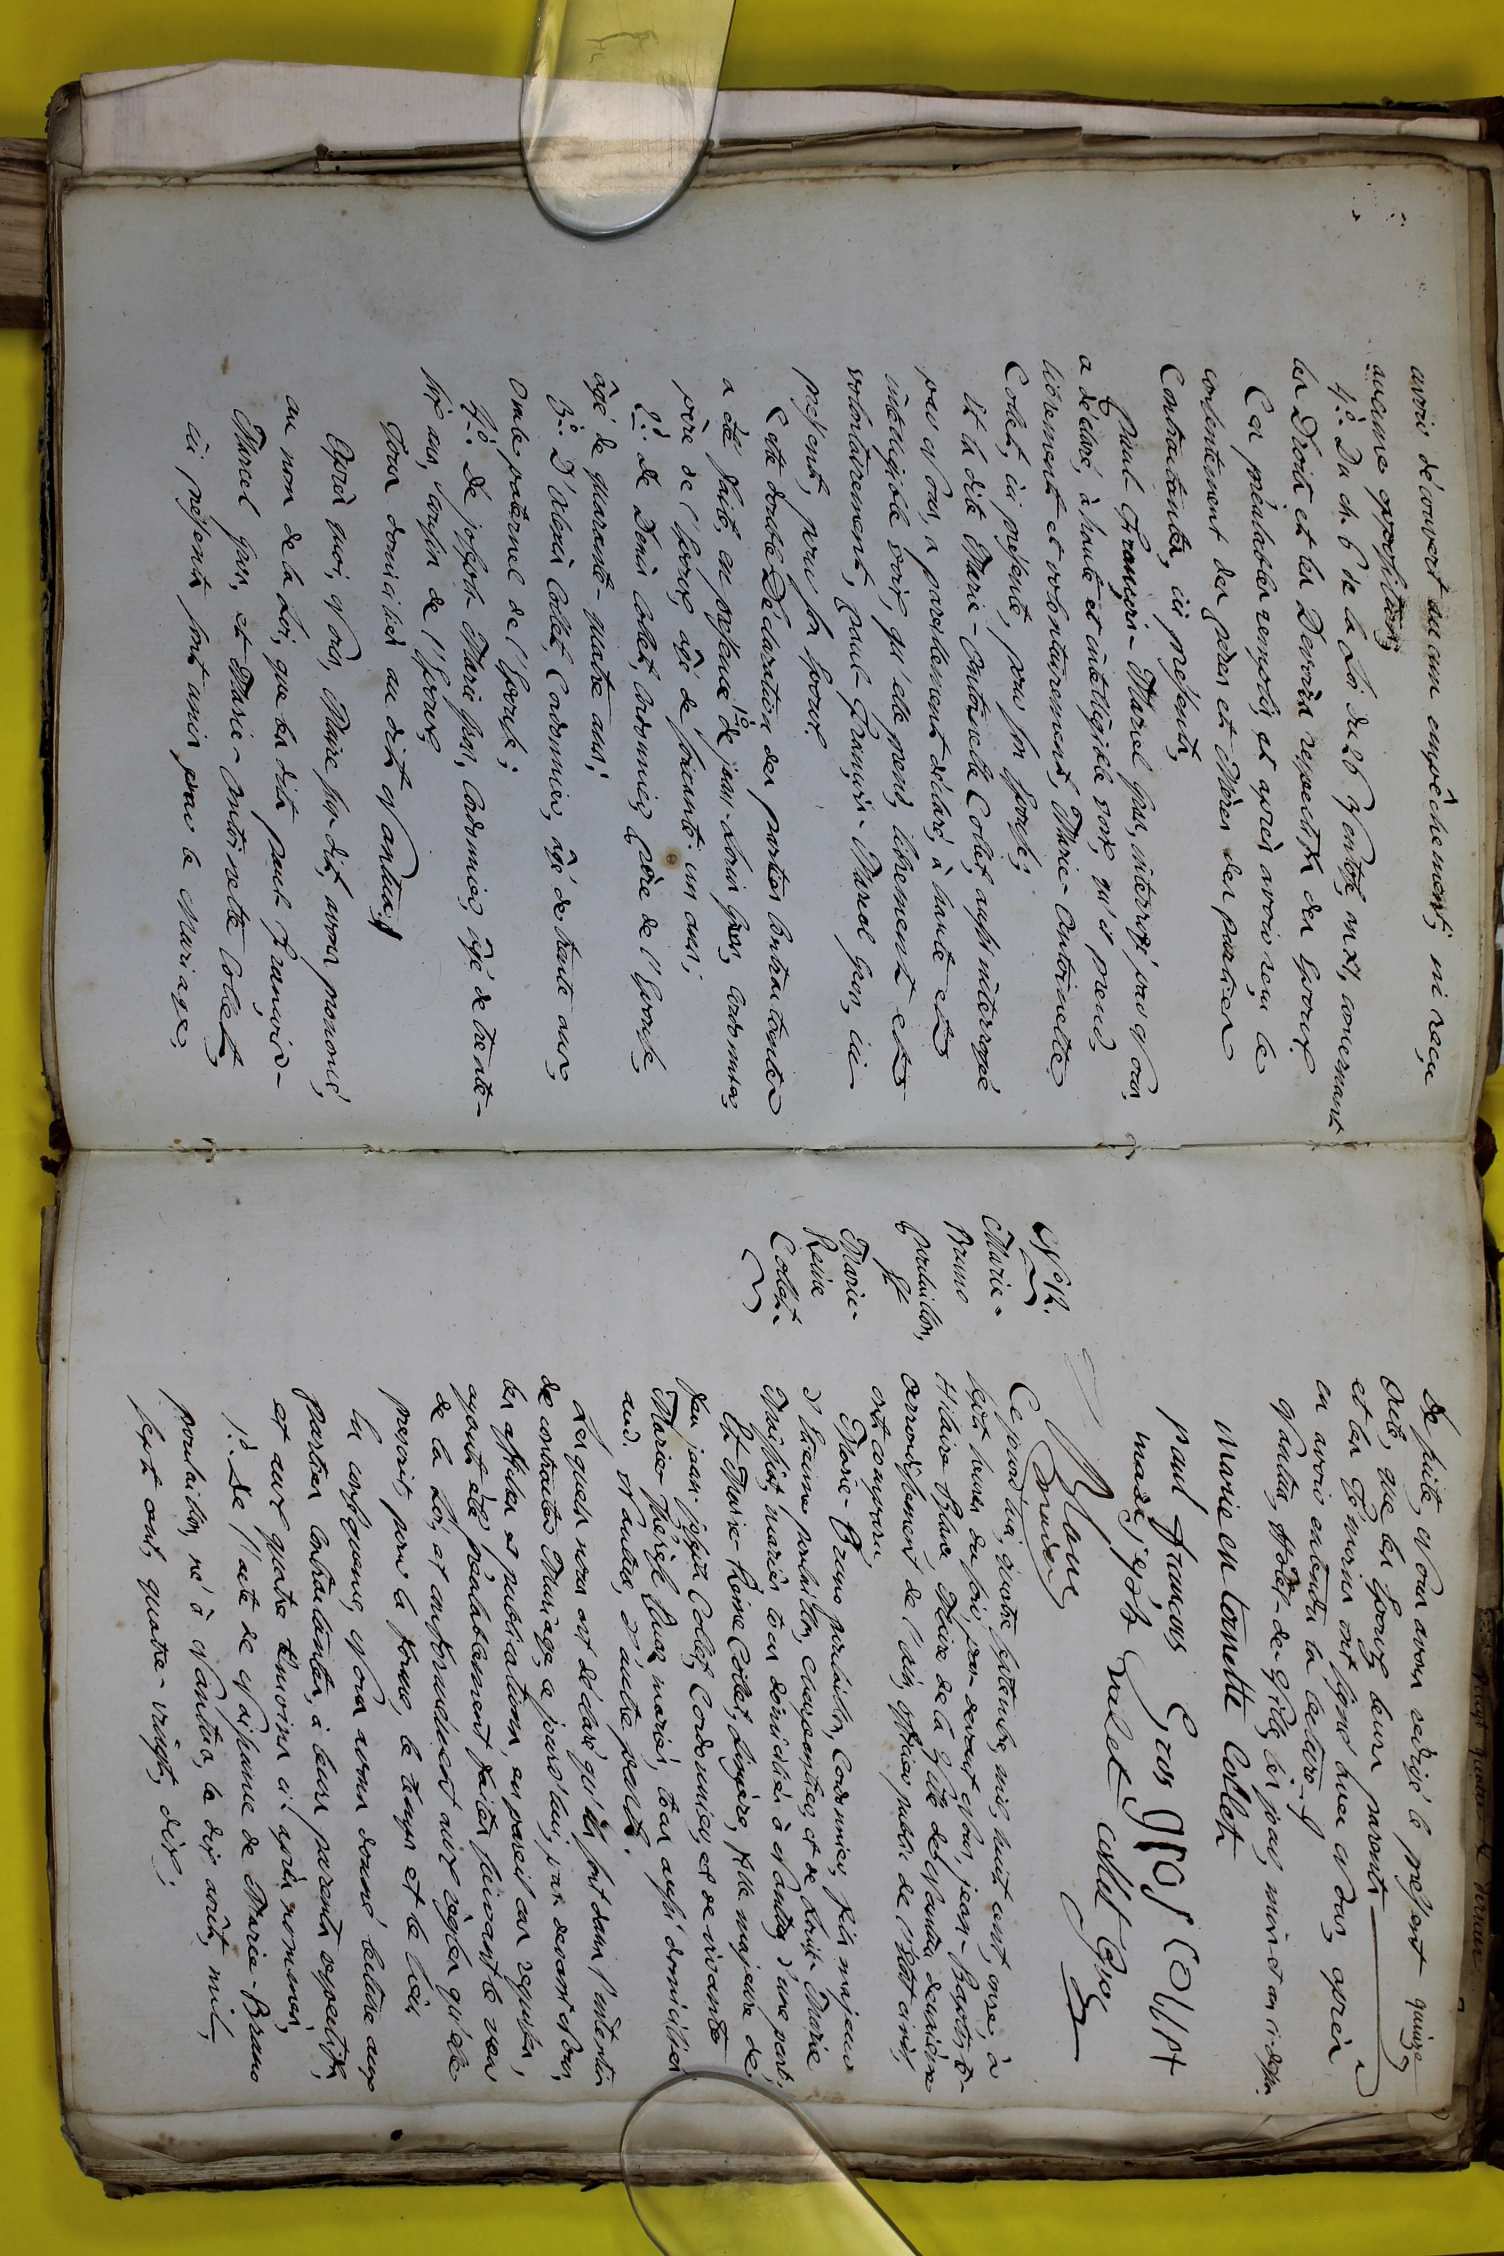 avoir découvert aucun empêchement, ni reçu
aucune opposition;
4.° Du ch. 6 de la Loi du 26 Ventôse, an XI, concernant
les Droits et les Devoirs respectifs des Epoux
Ces préalables remplis, et après avoir reçu le
consentement des pères et Mères des parties
Contractantes, ici présents,
Paul François-Marcel Gros, interrogé par Nous,
a déclaré, à haute et intelligible voix, qu'il prend,
librement et volontairement, Marie-Antoinette
Collet, ici présente, pour son Epouse;
Et la dite Marie-Antoinette Collet, aussi interrogée
par Nous, a pareillement déclaré, à haute et
intelligible voix, qu'elle prend, librement et
volontairement, Paul-François-Marcel Gros, ici
présent, pour son Epoux.
Cette double Déclaration des parties Contractantes
a été faite, en présence 1.° de Jean-Louis Gros, Cordonnier,
père de l'Epoux, âgé de soixante-un ans;
2.° De Denis Collet, Cordonnier, père de l'Epouse,
âgé de quarante-quatre ans;
3.° D'Alexis Collet, Cordonnier, âgé de trente ans,
Oncle paternel de l'Epouse;
4.° De Joseph Marie Gros, Cordonnier, âgé de trente-
six ans, Cousin de l'Epoux,
Tous domiciliés au dit Nantua;
Après quoi, Nous, Maire susdit, avons prononcé,
au nom de la Loi, que les dits Paul-François-
Marcel Gros, et Marie-Antoinette Collet,
ici présents, sont unis par le Mariage;
quinze
De suite, Nous avons rédigé le présent
Acte, que les Epoux, leurs parents
et les Témoins ont signé avec Nous, après
en avoir entendu la lecture.
Nantua, Hôtel-de-Ville, les jour, mois et an ci-dessus.
marie en tonette Collet
paul francois Gros gros collet
marie joseph Gros collet collet Gros
Blanc
N.° 12.
Marie-
Bruno
Poulaillon,
et
Marie-
Reine
Collet.
Ce jourd'hui, quatre septembre, mil huit cent, onze, à
sept heures du soir, par devant Nous, Jean-Baptiste-
Hilaire Blanc, Maire de la Ville de Nantua, deuxième
arrondissement de l'Ain, officier public de l'Etat civil,
ont comparu,
Marie-Bruno Poulaillon, Cordonnier, fils majeur
d'Etienne Poulaillon, Charpentier, et de Louise Marie
mariés, tous domiciliés à Nantua, d'une part;
Et Marie-Reine Collet, Lingère, fille majeure de
feu Jean-Joseph Collet, Cordonnier, et de vivante
Marie-Thérèse mariés, tous aussi domiciliés
aud. Nantua, d'autre part.
Lesquels nous ont déclaré qu'ils sont dans l'intention
de contracter Mariage, ce jourd'hui, par devant Nous,
les affiches et publications, en pareil cas requises,
ayant été préalablement faites suivant le vœu
de la Loi, et conformément aux règles qu'elle
prescrit, pour la forme, le temps et le lieu.
En conséquence, Nous avons donné lecture aux
parties Contractantes, à leurs parents respectifs,
et aux quatre témoins ci-après nommés,
1.° De l'acte de Naissance de Marie-Bruno
Poulaillon, né à Nantua, le dix août, mil,
sept cent, quatre-vingt, dix;